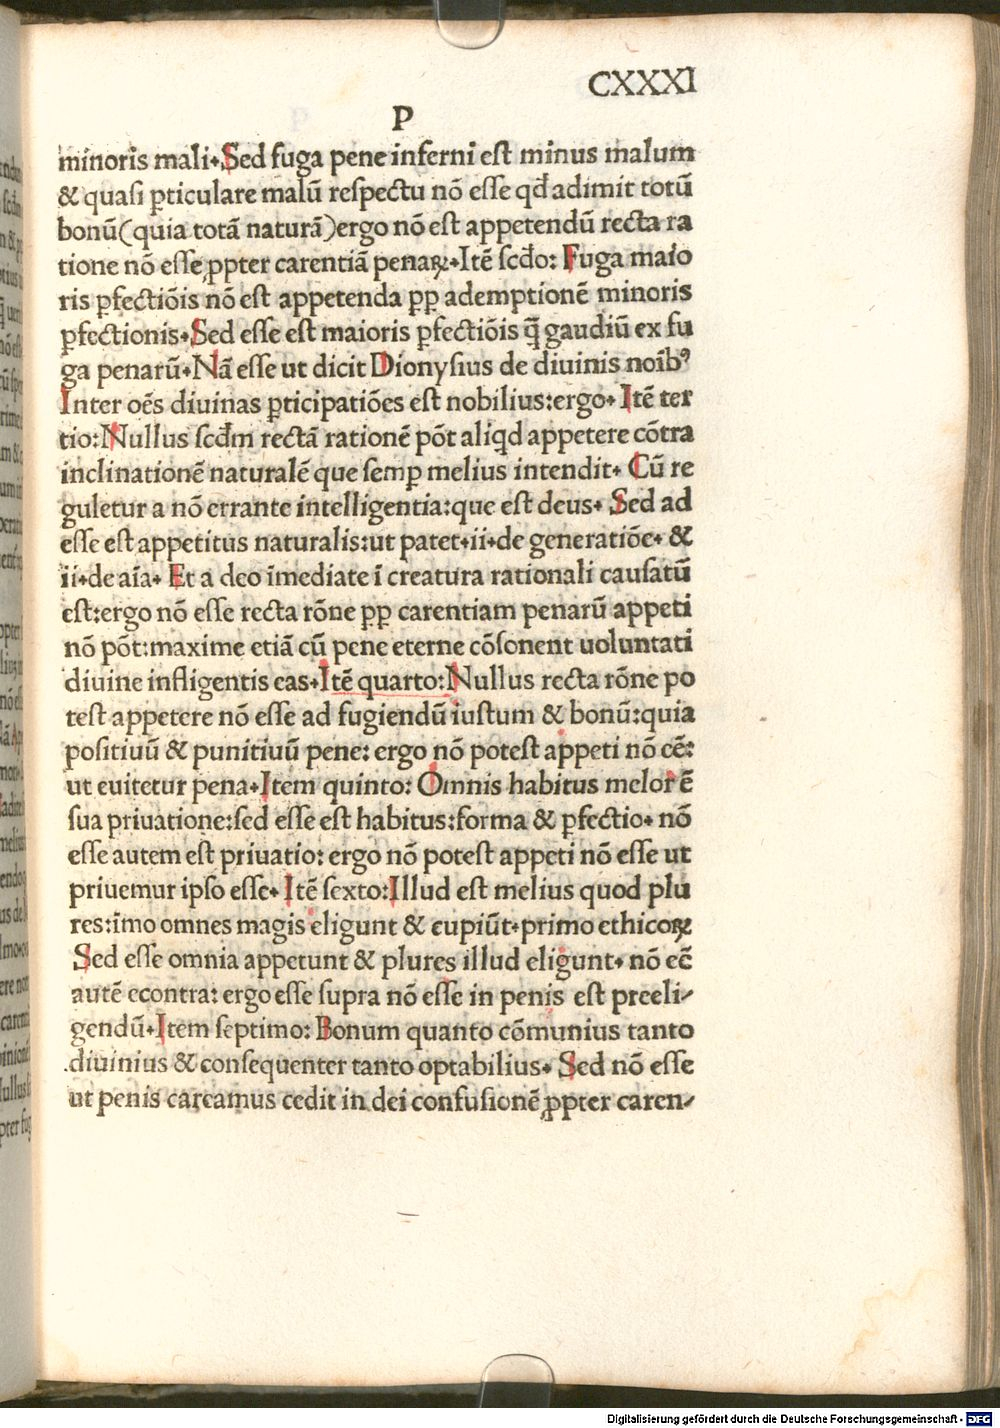 CXXXI
P
minoris mali. Sed fuga pene inferni est minus malum
& quasi ꝑticulare malū respectu nō esse qđ adimit totū
bonū (quia totā naturā) ergo nō est appetendū recta ra
tione nō esse ꝓpter carentiā penaꝝ. Itē scđo: Fuga maio
ris ꝑfectiōis nō est appetenda ꝓp ademptionē minoris
ꝑfectionis. Sed esse est maioris ꝑfectiōis q̄ gaudiū ex fu
ga penarū. Nā esse ut dicit Dionysius de diuinis noib⁹
Inter oēs diuinas ꝑticipatiōes est nobilius: ergo. Itē ter
tio: Nullus scđm rectā rationē pōt aliqd appetere cōtra
inclinationē naturalē que semꝑ melius intendit. Cū re
guletur a nō errante intelligentia: que est deus. Sed ad
esse est appetitus naturalis: ut patet. ii. de generatiōe. &
ii. de aīa. Et a deo īmediate ī creatura rationali causatū
est: ergo nō esse recta rōne ꝓp carentiam penarū appeti
nō pōt: maxime etiā cū pene eterne cōsonent uoluntati
diuine infligentis eas. Itē quarto: Nullus recta rōne po
test appetere nō esse ad fugiendū iustum & bonū: quia
positiuū & punitiuū pene: ergo nō potest appeti nō eē:
ut euitetur pena. Item quinto: Omnis habitus melor ē
sua priuatione: sed esse est habitus: forma & ꝑfectio. nō
esse autem est priuatio: ergo nō potest appeti nō esse ut
priuemur ipso esse. Itē sexto: Illud est melius quod plu
res: īmo omnes magis eligunt & cupiūt. primo ethicoꝝ
Sed esse omnia appetunt & plures illud eligunt. nō eē
autē econtra: ergo esse supra nō esse in penis est preeli-
gendū. Item septimo: Bonum quanto cōmunius tanto
diuinius & consequenter tanto optabilius. Sed nō esse
ut penis careamus cedit in dei confusionē ꝓpter caren-
Digitalisierung gefördert durch die Deutsche Forschungsgemeinschaft - DFG